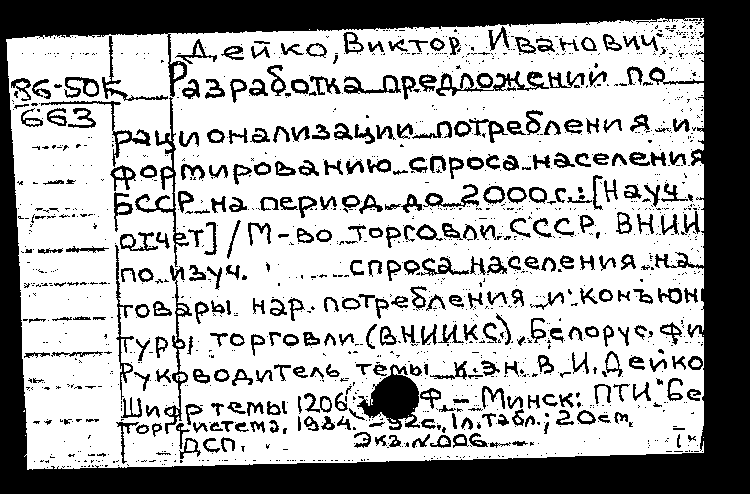 Дейко, Виктор Иванович.
86-50К
663
Разработка предложений по
рационализации потребления и
формированию спроса населения
БССР на период до 2000г.: [Науч.
отчет] / М-во торговли СССР, ВНИИ
по изуч. спроса населения на
товары нар. потребления и конъюн
туры торговли (ВНИИКС), Белорус. фи
Руководитель темы к.эн. В.И. Дейко
Шифр темы 1206 Ф. – Минск: ПТИ Бе
торгсистема, 1984. – 92с., 1л. табл.; 20см.
ДСП. Экз. N 006.